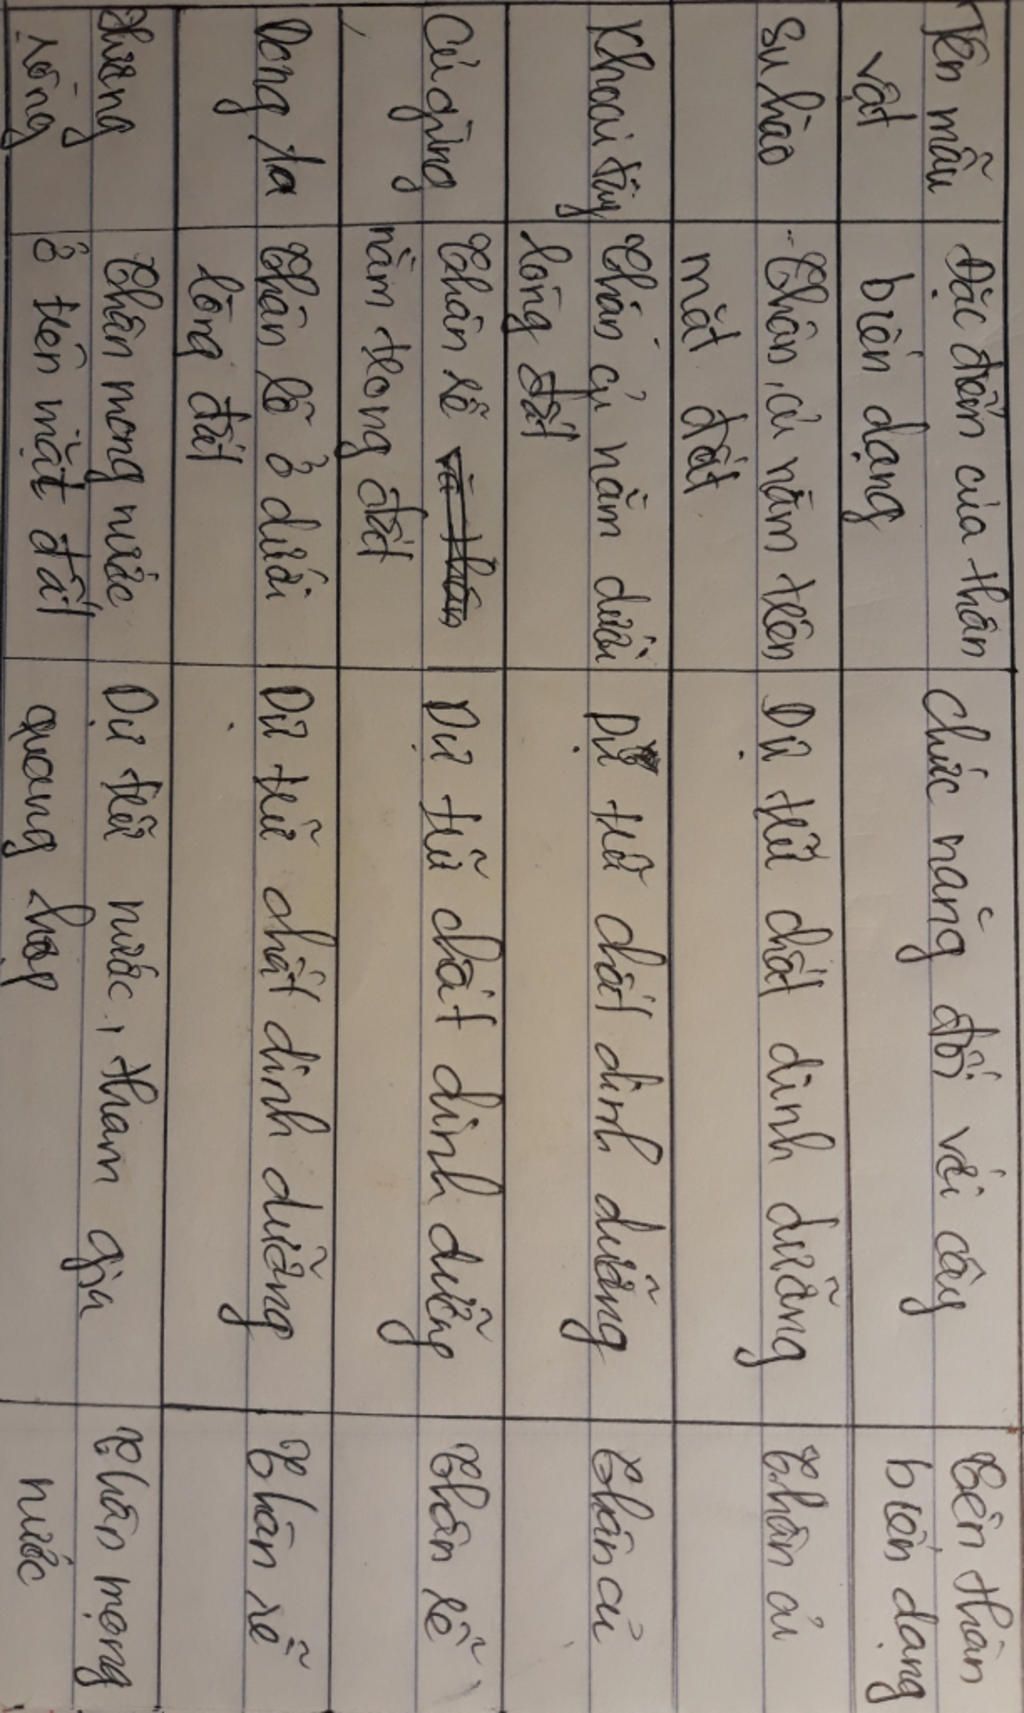 Tên mẫu
vật
Đặc điểm của thân
biến dạng
Chức năng đối với cây
Tên thân
biến dạng
Su hào
Thân củ nằm trên
mặt đất
Dự trữ chất dinh dưỡng
Thân củ
Khoai tây
Thân củ nằm dưới
lòng đất
Dự trữ chất dinh dưỡng
Thân củ
Củ gừng
Thân rễ
nằm trong đất
Dự trữ chất dinh dưỡng
Thân rễ
Dong ta
Thân rễ ở dưới
lòng đất
Dự trữ chất dinh dưỡng
Thân rễ
Xương
rồng
Thân mọng nước
ở trên mặt đất
Dự trữ nước, tham gia
quang hợp
Thân mọng
nước